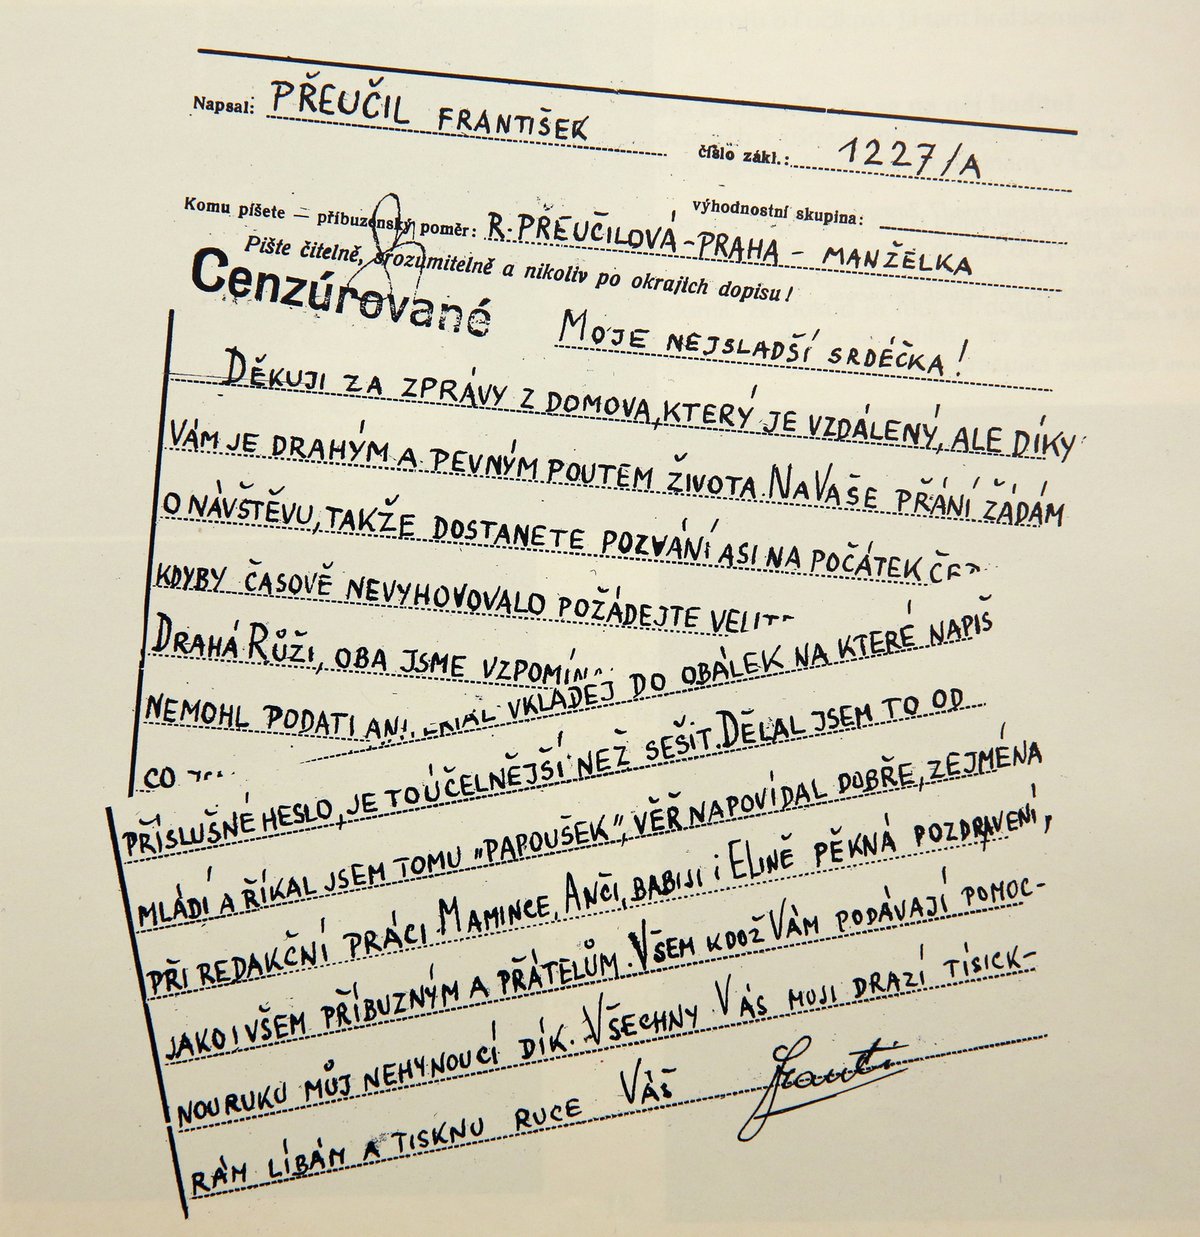 Napsal: PŘEUČIL FRANTIŠEK
číslo zákl.: 1227/A
Komu píšete — příbuzenský poměr: R. PŘEUČILOVÁ - PRAHA - MANŽELKA
výhodnostní skupina:
Pište čitelně, srozumitelně a nikoliv po okrajích dopisu!
Cenzúrované
MOJE NEJSLADŠÍ SRDÉČKA!
DĚKUJI ZA ZPRÁVY Z DOMOVA, KTERÝ JE VZDÁLENÝ, ALE DÍKY
VÁM JE DRAHÝM A PEVNÝM POUTEM ŽIVOTA. NA VAŠE PŘÁNÍ ŽÁDÁM
O NÁVŠTĚVU, TAKŽE DOSTANETE POZVÁNÍ ASI NA POČÁTEK
KDYBY ČASOVĚ NEVYHOVOVALO POŽÁDEJTE
DRAHÁ RŮŽI, OBA JSME
NEMOHL PODATI ANI
CO
VKLÁDEJ DO OBÁLEK NA KTERÉ NAPIŠ
PŘÍSLUŠNÉ HESLO, JE TO ÚČELNĚJŠÍ NEŽ SEŠIT. DĚLAL JSEM TO OD
MLÁDÍ A ŘÍKAL JSEM TOMU "PAPOUŠEK", VĚŘ NAPOVÍDAL DOBŘE, ZEJMÉNA
PŘI REDAKČNÍ PRÁCI. MAMINCE, ANČI, BABIJI i ELINĚ PĚKNÁ POZDRAVENÍ,
JAKO I VŠEM PŘÍBUZNÝM A PŘÁTELŮM. VŠEM KDOŽ VÁM PODÁVAJÍ POMOC-
NOU RUKU MŮJ NEHYNOUCÍ DÍK. VŠECHNY VÁS MOJI DRAZÍ TISÍCK-
RÁM LÍBÁM A TISKNU RUCE VÁŠ Franti